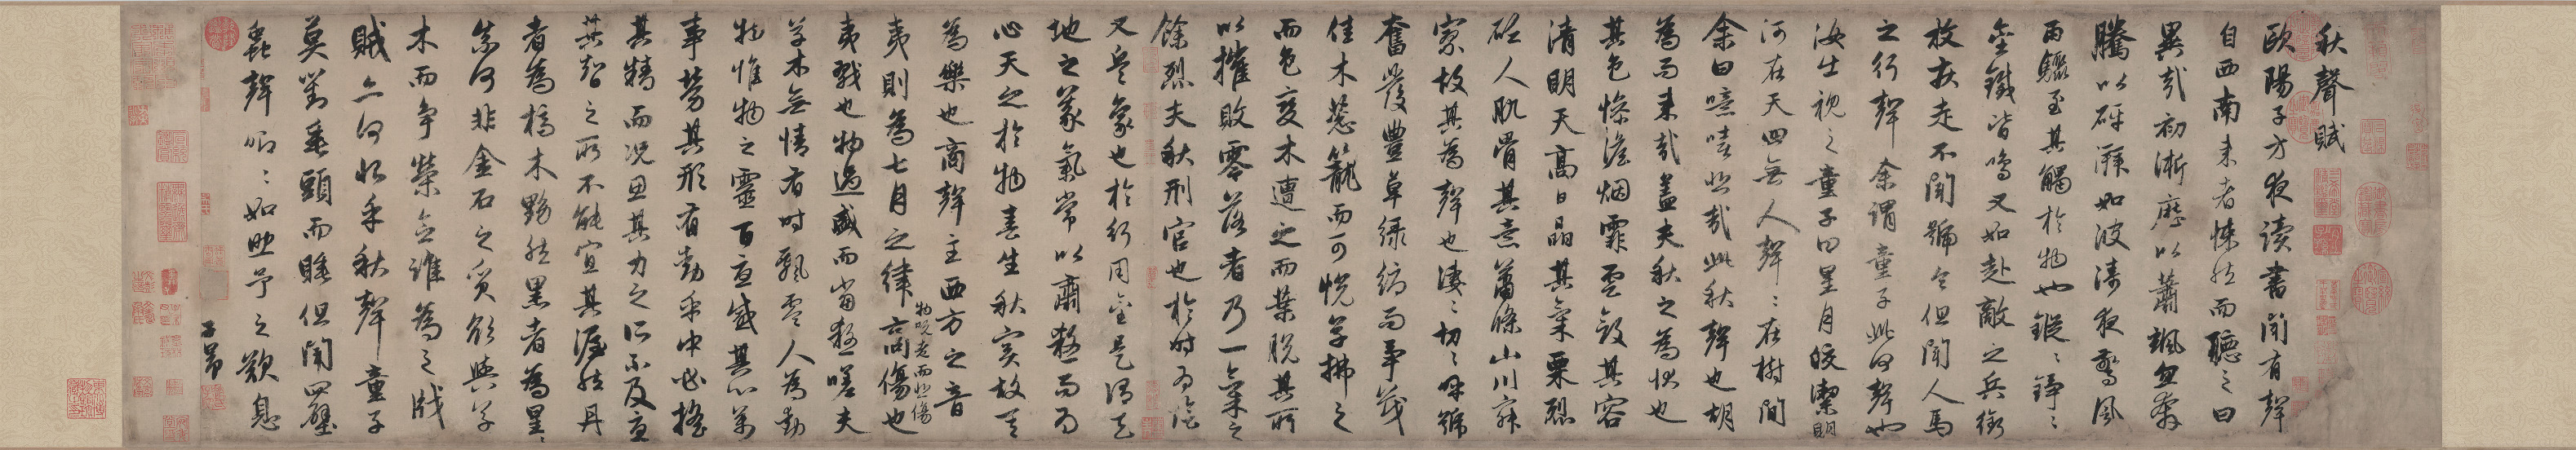 秋聲賦
歐陽子方夜读書闻有聲
自西南来者悚然而聽之曰
異哉初淅瀝以蕭颯忽奔
騰以砰湃如波涛夜驚風
雨驟至其觸於物也鏦〻錚〻
金鐵皆鳴又如赴敵之兵銜
枚疾走不聞號令但聞人馬
之行聲余謂童子此何聲也
汝出視之童子曰星月皎潔明
河在天四無人聲〻在樹間
余曰噫嘻悲哉此秋聲也胡
為而来哉盖夫秋之為状也
其色惨澹烟霏雲斂其容
清明天高日晶其氣栗烈
砭人肌骨其意蕭條山川寂
寥故其為聲也淒〻切〻呼號
奮發豐草绿縟而争茂
佳木葱籠而可悦草拂之
而色变木遭之而葉脱其所
以摧敗零落者乃一氣之
餘烈夫秋刑官也於时為陰
又兵象也於行用金是謂天
地之義氣常以肅殺而為
心天之於物春生秋實故其
為樂也商聲主西方之音
夷則為七月之律商傷也
物既老而悲傷
夷戮也物過盛而當殺嗟夫
草木無情有时飄零人為動
物惟物之靈百憂感其心萬
事勞其形有動乎中必搖
其精而况思其力之所不及憂
其智之所不能宜其渥然丹
者為槁木黟然黑者為星〻
奈何非金石之質欲與草
木而争榮念誰為之戕
賊亦何恨乎秋聲童子
莫對垂頭而睡但聞四壁
蟲聲唧〻如助予之歎息
子昂